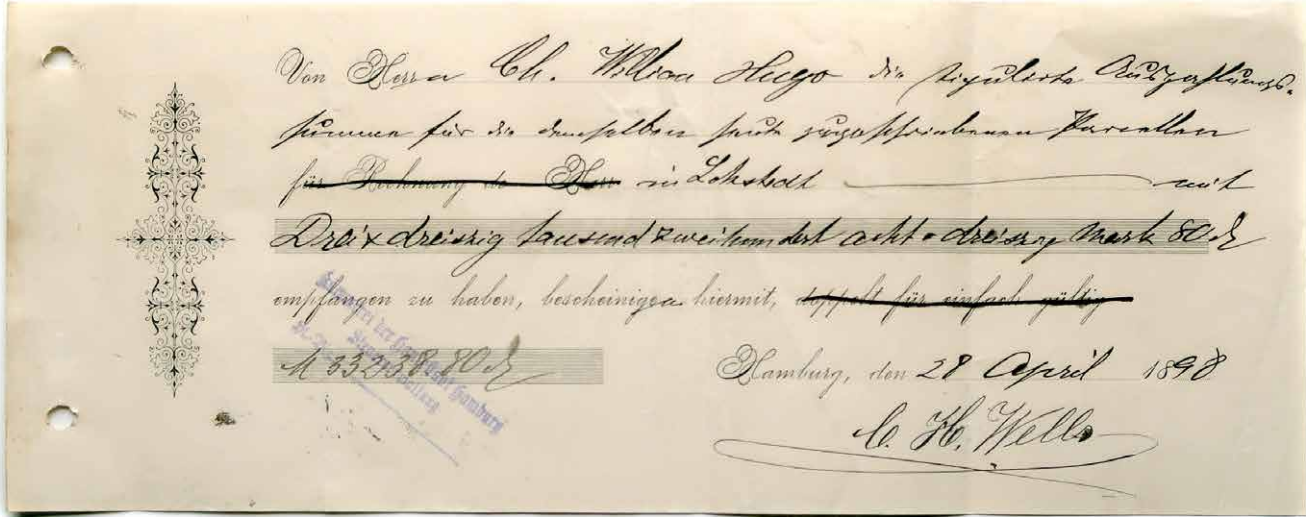 Von Herrn Ch. William Hugo die stipulirte Auszahlungs-
summe für die demselben heute zugeschriebenen Parcellen
für Rechnung de Herr in Lokstedt mit
Drei & dreissig tausend zweihundert acht & dreissig Mark 80 ₰
empfangen zu haben, bescheinige hiermit, doppelt für einfach gültig
M 33238.80 ₰
Hamburg, den 28 April 1898
C. H. Wells